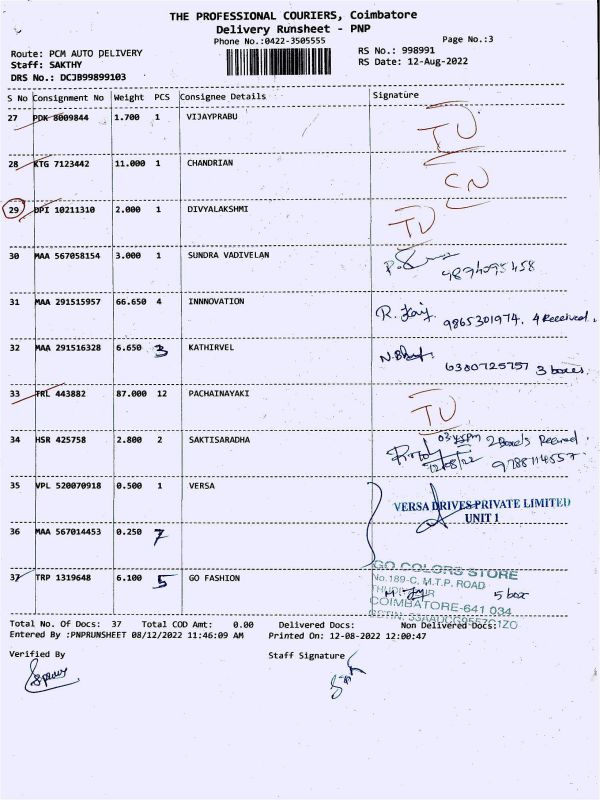 THE PROFESSIONAL COURIERS, Coimbatore
Delivery Runsheet - PNP
Phone No.:0422-3505555
Page No.:3
Route: PCM AUTO DELIVERY
RS No.: 998991
Staff: SAKTHY
RS Date: 12-Aug-2022
DRS No.: DCJB99899103
S No Consignment No Weight PCS Consignee Details Signature
27 PDK 8009844 1.700 1 VIJAYPRABU TU
28 KTG 7123442 11.000 1 CHANDRIAN CN
29 DPI 10211310 2.000 1 DIVYALAKSHMI TU
30 MAA 567058154 3.000 1 SUNDRA VADIVELAN
31 MAA 291515957 66.650 4 INNNOVATION 9865301974. 4 Received.
32 MAA 291516328 6.650 3 KATHIRVEL 6380725757 3 boxes.
33 TRL 443882 87.000 12 PACHAINAYAKI TU
34 HSR 425758 2.800 2 SAKTISARADHA 03:45pm 2 Received.
12/08/22 9788114557
35 VPL 520070918 0.500 1 VERSA
VERSA DRIVES PRIVATE LIMITED
UNIT 1
36 MAA 567014453 0.250 7
37 TRP 1319648 6.100 5 GO FASHION
GO COLORS STORE
No.189-C, M.T.P. ROAD
5 box
COIMBATORE-641 034
Total No. Of Docs: 37 Total COD Amt: 0.00 Delivered Docs: Non Delivered Docs:
Entered By :PNPRUNSHEET 08/12/2022 11:46:09 AM Printed On: 12-08-2022 12:00:47
Verified By
Staff Signature